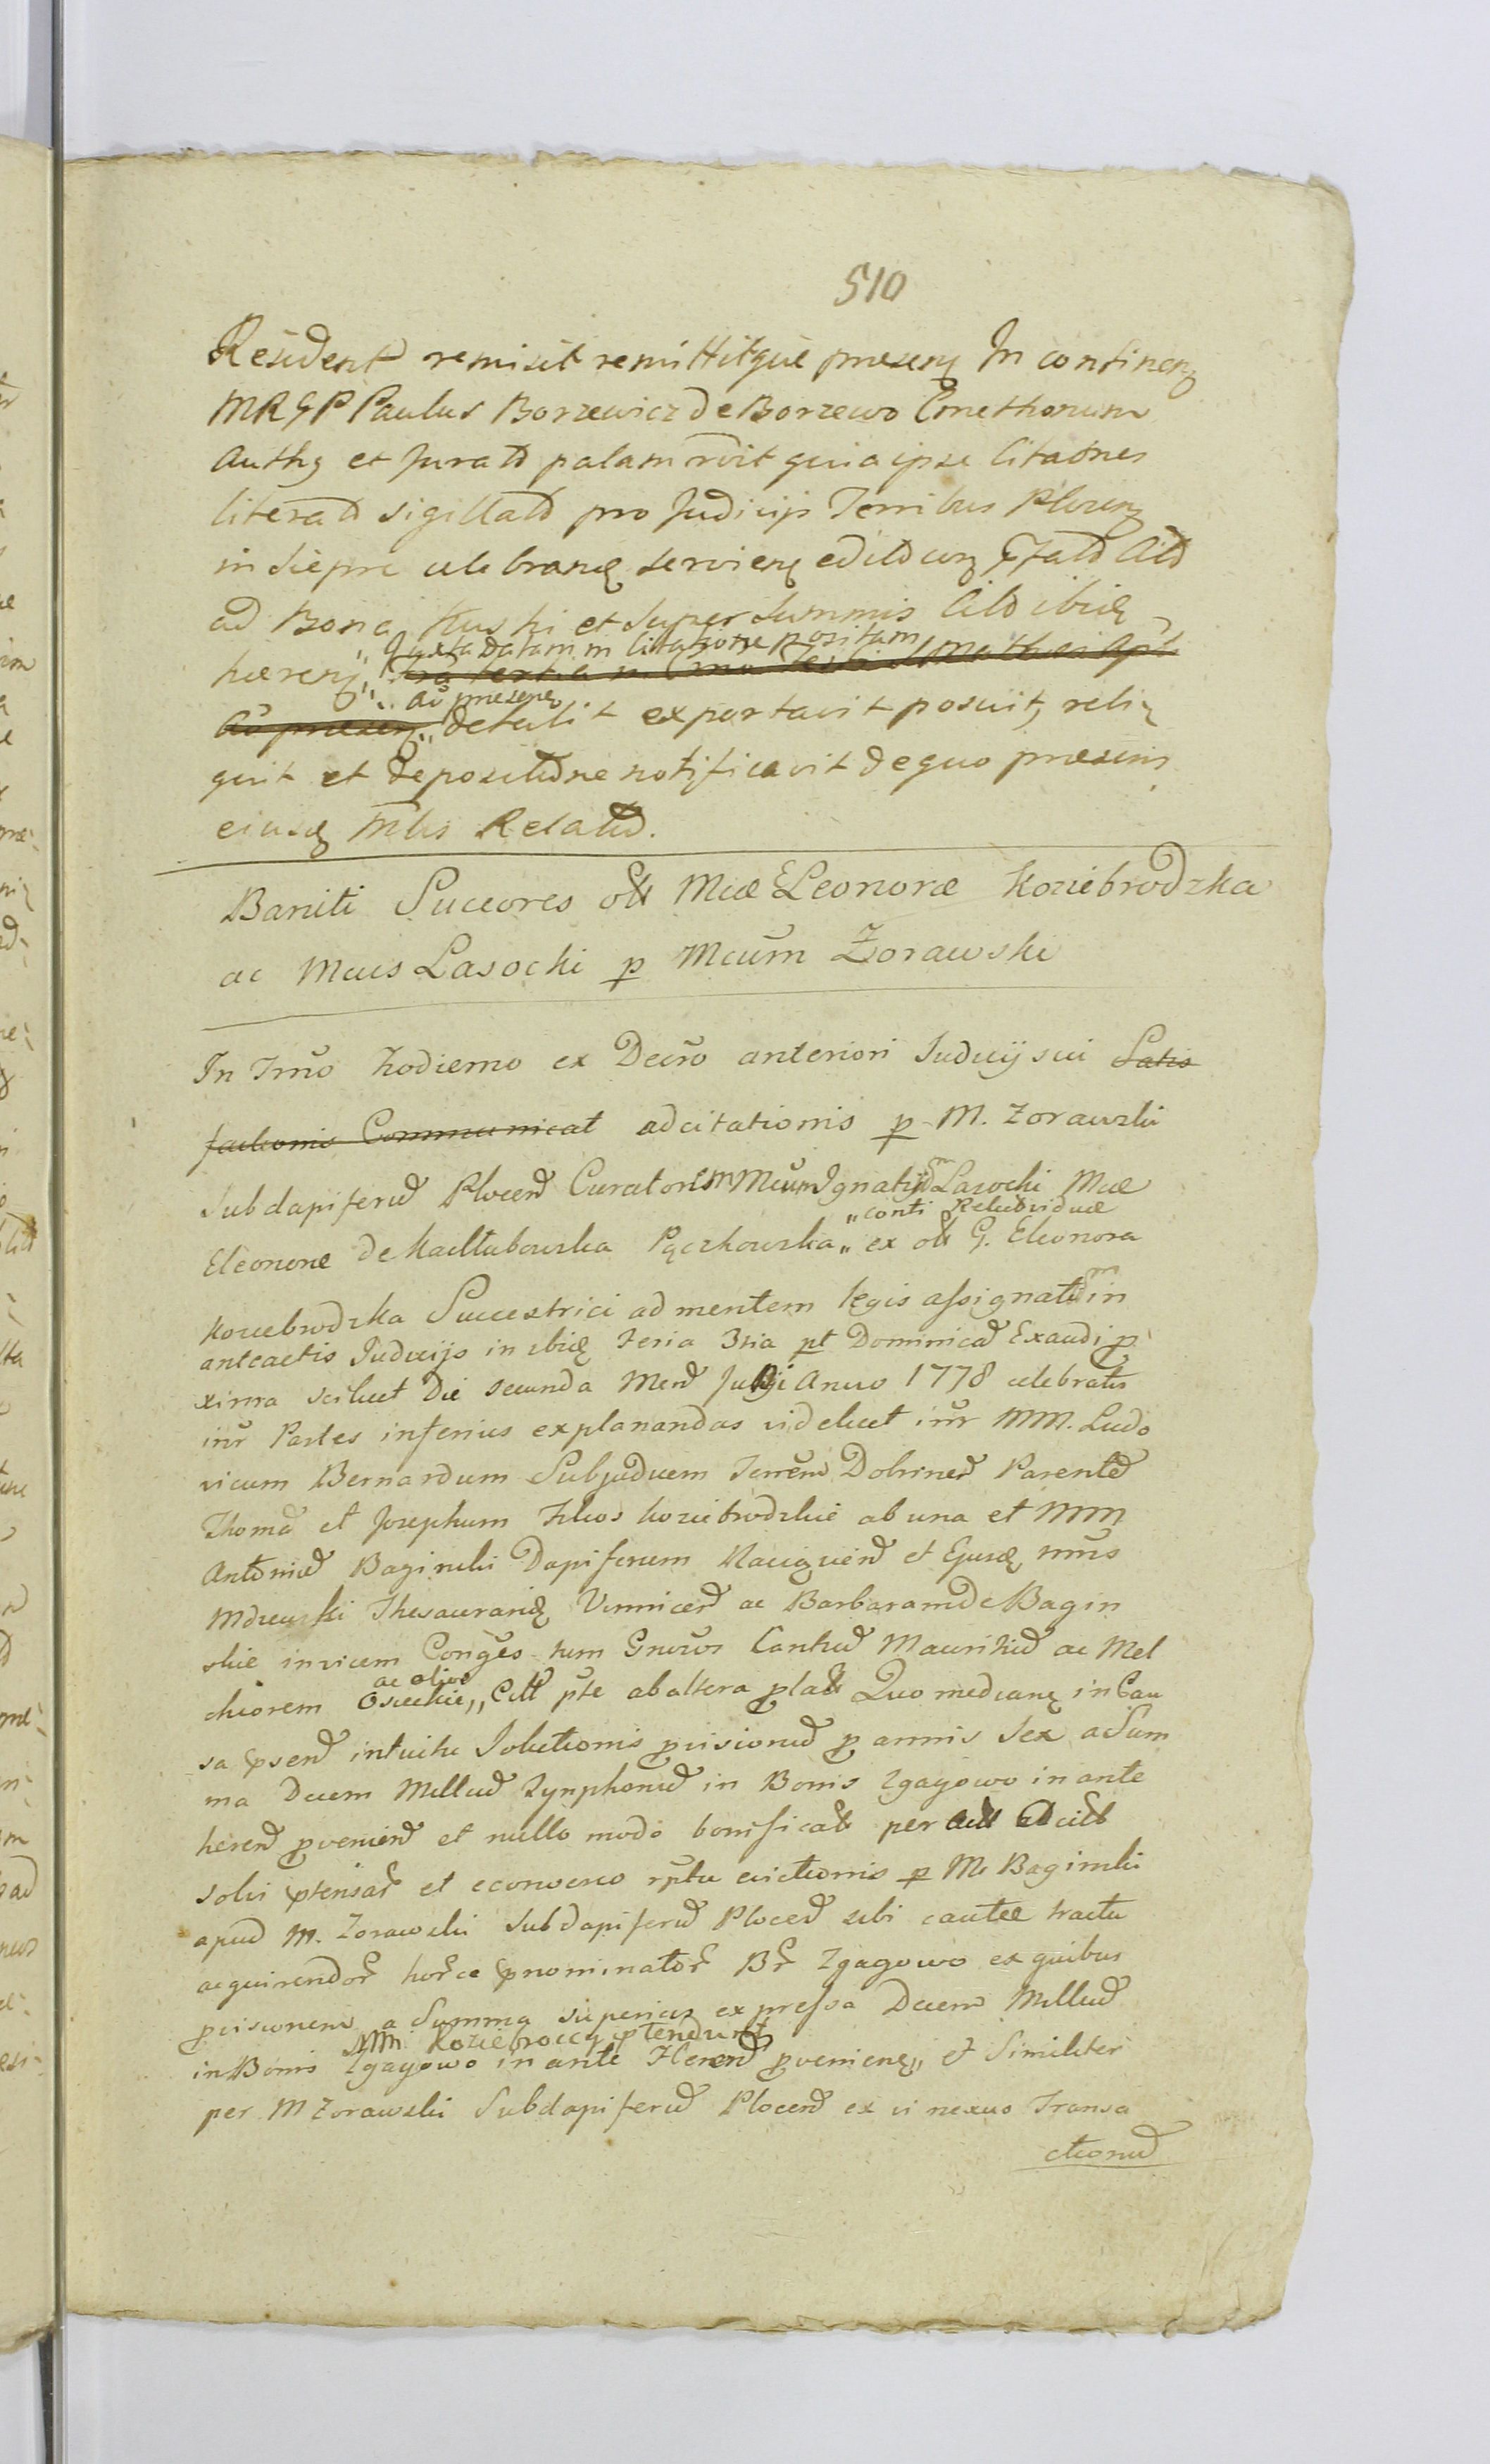 510
Resident remisit remittitque presens In continen
MRGP Paulus Borzewicz de Borzewo Cmethonum
Auths et Jurat palam rōit quia ipse Citatones
literat sigillat pro Judicijs Terribus Plocen
in Siepre celebrand servien edit cum Cit
ad Bona et super Summis Cit ibid
Juxta datam in Citatione positam
hæren
ad presens
ad præsen detulit exportavit posuit, reli
quit et depositione notificavit de quo præsens
eiusd Mlis Relat.
Baniti Succores olt Mcæ Eleonoræ Koziebrodzka
ac Mcus Lasocki p Mcūm Zorawski
In Tmō hodierno ex Decrō anteriori Judicij sui Satis
factionis Communicat adcitationis p M. Zorawski
Subdapiferum Plocen Curatorem Mcum Ignatium Lasocki Mcæ
"conti Relictæ viduæ
Eleonoræ de Kadłubowska Pęczkowska" ex olt G. Eleonora
Koziebrodzka Successtrici ad mentem legis assignatum in
anteactis Judicijs in ibid Feria 3tia pt Dominicam Exaudi pro
xima scilicet Die secunda Mens Junij Anno 1778 celebratis
intr Partes inferius explanandas videlicet intr MM. Ludo
vicum Bernardum Subjudicem Terrēm Dobrinen Parentem
Thomam et Josephum Filios Koziebrodzkie ab una et MM
Antonium Baginski Dapiferum et Ejusd
Mdzewski Thesaurarid Vinnicen ac Barbaram de Bagin
skie invicem Conges tum Gnosos Mauritium ac Mel
ac olive
chiorem Osieckie,, Citt pte ab altera plat Quo median in Cau
sa psend intuitu Solutionis provisionum pro annis Sex a Sum
ma Decem Millium Zynphorum in Bonis Zgagowo inante
heren provenien et nullo modo bonificat per adcitt
solvi ptensar et econverso rptu evictionis p M. Baginski
apud M. Zorawski Subdapiferum Plocen sibi cautæ tractu
acquirendor horce pnominator Br Zgagowo ex quibus
provisionem a Summa superius expressa Decem Millium
MM. Koziebroccy ptendunt
in Bonis Zgagowo inante Heren provenien,, et Similiter
per M Zorawski Subdapiferum Plocen ex vi nexuo Transa
ctionum